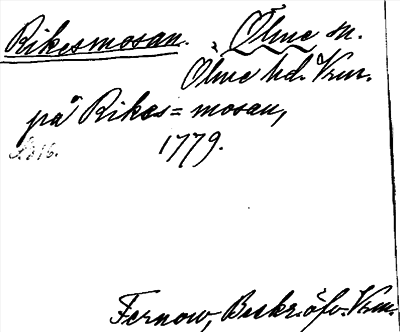 Rikesmosan. Ölme sn.
Ölme hd. Vrm.
på Rikes=mosan,
1779.
Fernow, Beskr. öfv. Vrm.